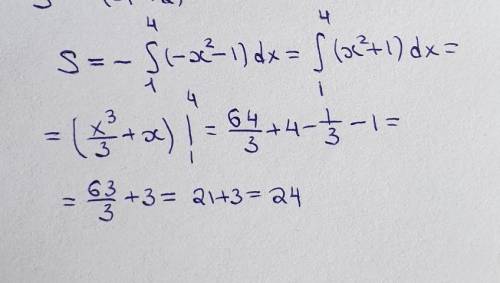 S = - ∫₁⁴ (-x²-1) dx = ∫₁⁴ (x²+1) dx =
= (x³/3 + x) |₁⁴ = 64/3 + 4 - 1/3 - 1 =
= 63/3 + 3 = 21+3 = 24